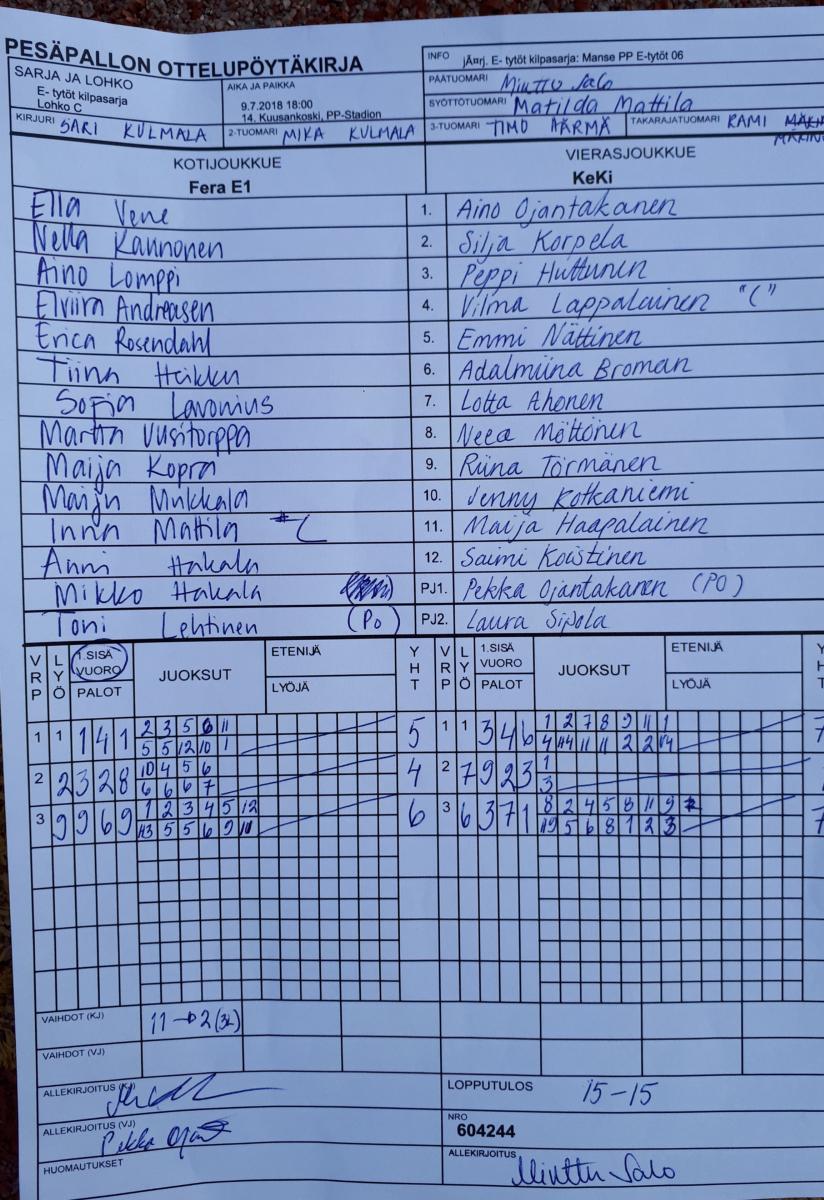 PESÄPALLON OTTELUPÖYTÄKIRJA
INFO jÃ¤rj. E- tytöt kilpasarja: Manse PP E-tytöt 06
SARJA JA LOHKO
E- tytöt kilpasarja
Lohko C
AIKA JA PAIKKA
9.7.2018 18:00
14. Kuusankoski, PP-Stadion
PÄÄTUOMARI Minttu Salo
SYÖTTÖTUOMARI Matilda Mattila
KIRJURI SARI KULMALA
2-TUOMARI MIKA KULMALA
3-TUOMARI TIMO HÄRMÄ
TAKARAJATUOMARI RAMI
KOTIJOUKKUE VIERASJOUKKUE
Fera E1 KeKi
Ella Vene 1. Aino Ojantakanen
Nella Kannonen 2. Silja Korpela
Aino Lomppi 3. Peppi Huttunen
Elviira Andreasen 4. Vilma Lappalainen "("
Erica Rosendahl 5. Emmi Nättinen
Tiina Heikku 6. Adalmiina Broman
Sofia Lavonius 7. Lotta Ahonen
Martta Uusitorppa 8. Neea Möttönen
Maija Kopra 9. Riina Törmänen
Maiju Mukkala 10. Jenny Kotkaniemi
Inna Mattila 11. Maija Haapalainen
Anni Hakala 12. Saimi Koistinen
Mikko Hakala PJ1. Pekka Ojantakanen (PO)
Toni Lehtinen (Po) PJ2. Laura Sipola
VRP LYÖ 1.SISÄ VUORO PALOT JUOKSUT ETENIJÄ LYÖJÄ YHT VRP LYÖ 1.SISÄ VUORO PALOT JUOKSUT ETENIJÄ LYÖJÄ
1 1 1 4 1 2 3 5 6 11 5 1 1 3 4 6 1 2 7 8 9 11 1
5 5 12 10 1 4 11 11 2 2
2 2 3 2 8 10 4 5 6 4 2 7 9 2 3 1
6 6 6 7 3
3 9 9 6 9 1 2 3 4 5 12 6 3 6 3 7 1 8 2 4 5 8 11 9
5 5 6 9 5 6 8 1 2 3
VAIHDOT (KJ) 11→2 (3L)
VAIHDOT (VJ)
ALLEKIRJOITUS (KJ)
LOPPUTULOS 15-15
ALLEKIRJOITUS (VJ) Pekka
NRO
604244
HUOMAUTUKSET
ALLEKIRJOITUS Minttu Salo